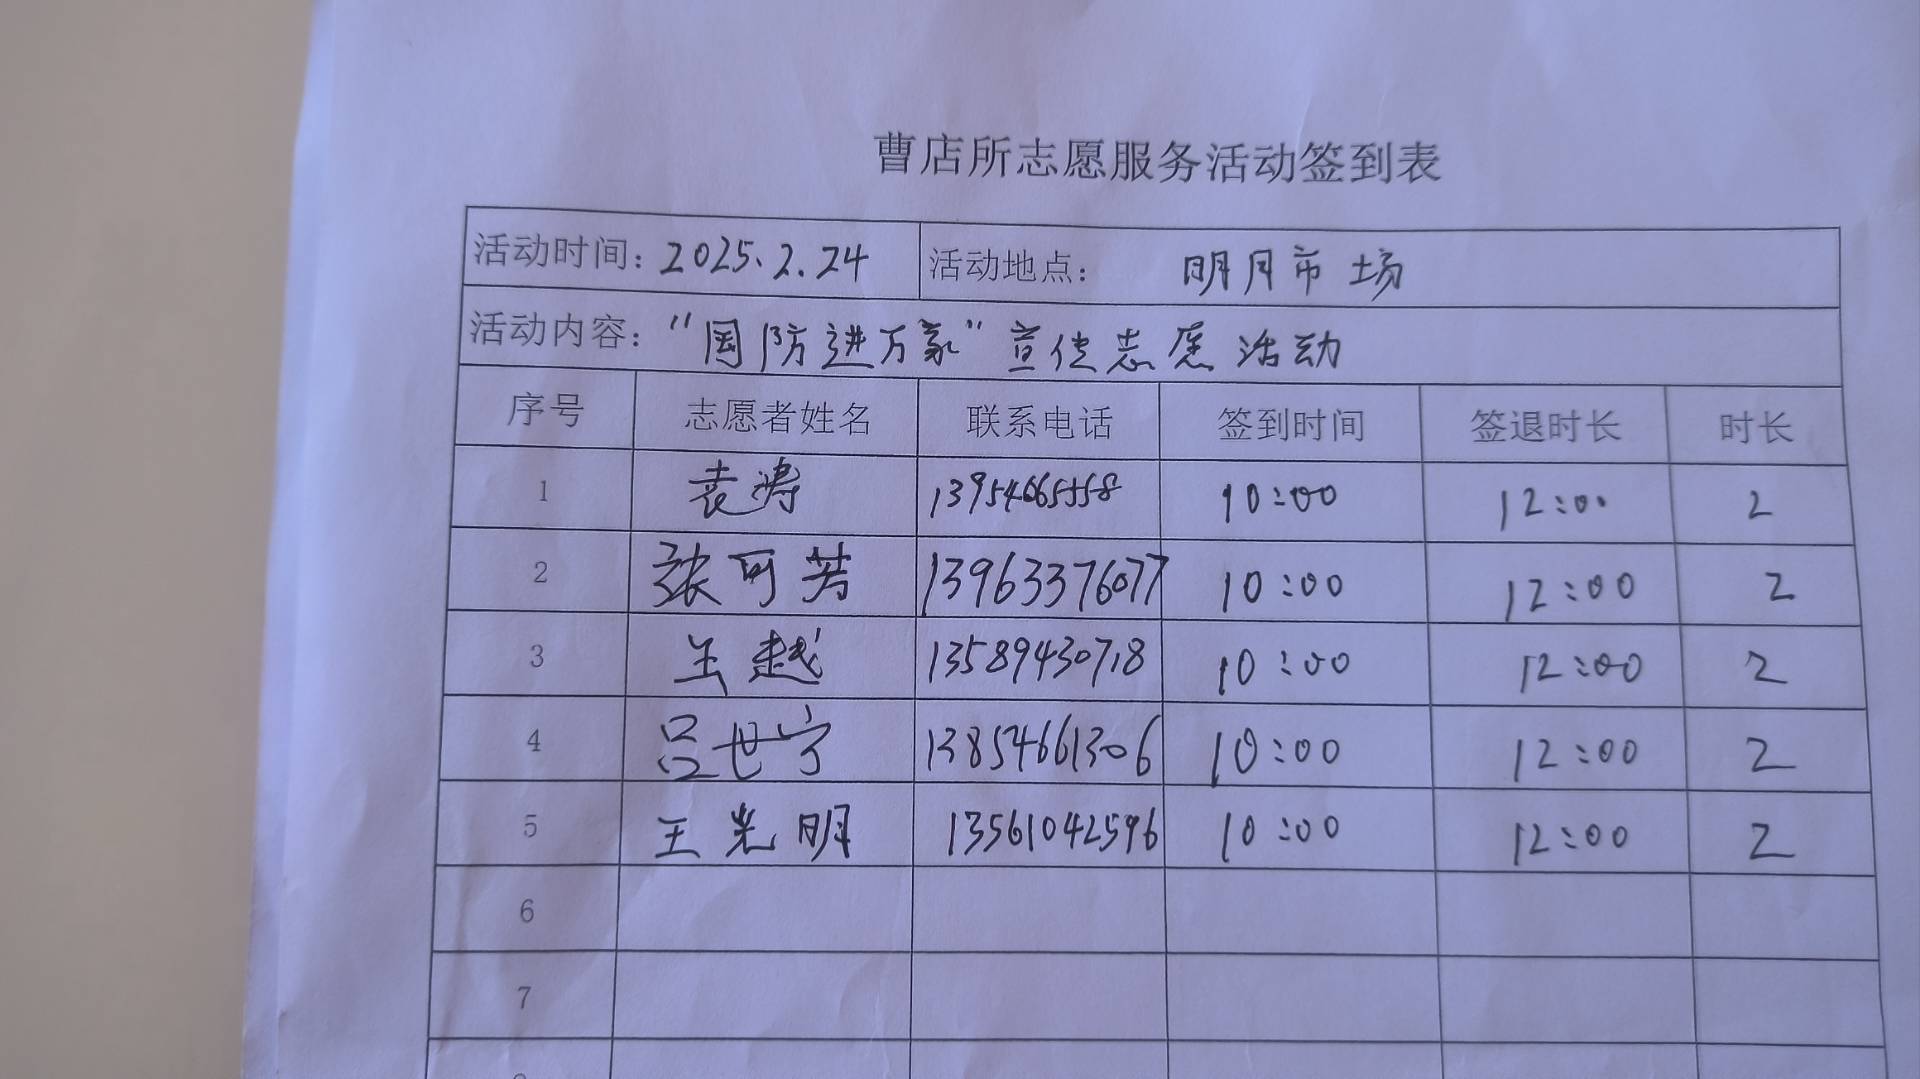 曹店所志愿服务活动签到表
活动时间：2025.2.24 活动地点： 明月市场
活动内容：“国防进万家”宣传志愿活动
序号 志愿者姓名 联系电话 签到时间 签退时长 时长
1 袁涛 13954665558 10:00 12:00 2
2 张可芳 13963376077 10:00 12:00 2
3 王越 13589430718 10:00 12:00 2
4 吕世宁 13854661306 10:00 12:00 2
5 王光明 13561042596 10:00 12:00 2
6
7